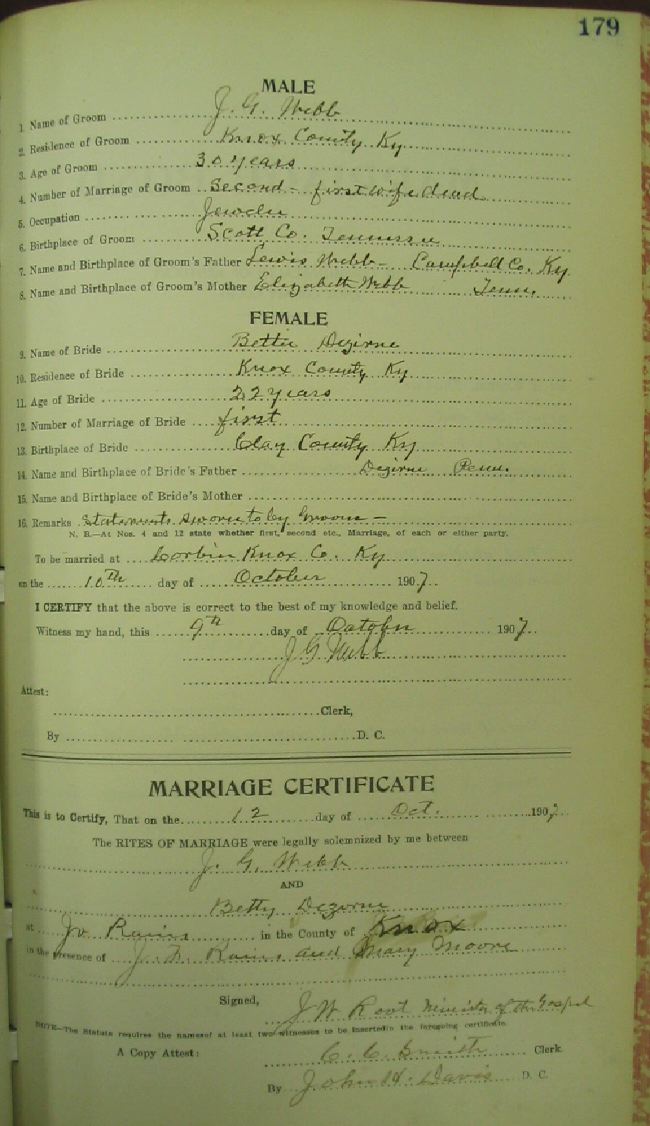 179
MALE
1. Name of Groom J. G. Webb
2. Residence of Groom Knox County Ky
3. Age of Groom 30 years
4. Number of Marriage of Groom Second - first wife dead
5. Occupation
6. Birthplace of Groom Scott Co. Tennessee
7. Name and Birthplace of Groom's Father Lewis Webb - Campbell Co. Ky
8. Name and Birthplace of Groom's Mother Elizabeth Webb Tenn.
FEMALE
9. Name of Bride Bettie Dezirne
10. Residence of Bride Knox County Ky
11. Age of Bride 22 years
12. Number of Marriage of Bride first
13. Birthplace of Bride Clay County Ky
14. Name and Birthplace of Bride's Father Dezirne Penn.
15. Name and Birthplace of Bride's Mother
16. Remarks Statements sworn to by Groom -
N. B.—At Nos. 4 and 12 state whether first, second etc., Marriage, of each or either party.
To be married at Corbin Knox Co. Ky
on the 10th day of October 1907.
I CERTIFY that the above is correct to the best of my knowledge and belief.
Witness my hand, this 9th day of October 1907.
J G Webb
Attest:
Clerk,
By D. C.
MARRIAGE CERTIFICATE
This is to Certify, That on the 12 day of Oct. 1907
The RITES OF MARRIAGE were legally solemnized by me between
J. G. Webb
AND
Betty Dezorne
at Jo Rains in the County of Knox
in the presence of J. N. Rains and Mary Moore
Signed, J W Root Minister of the Gospel
NOTE—The Statute requires the names of at least two witnesses to be inserted in the foregoing certificate.
A Copy Attest: C. C. Smith Clerk
By John H. Davis D. C.